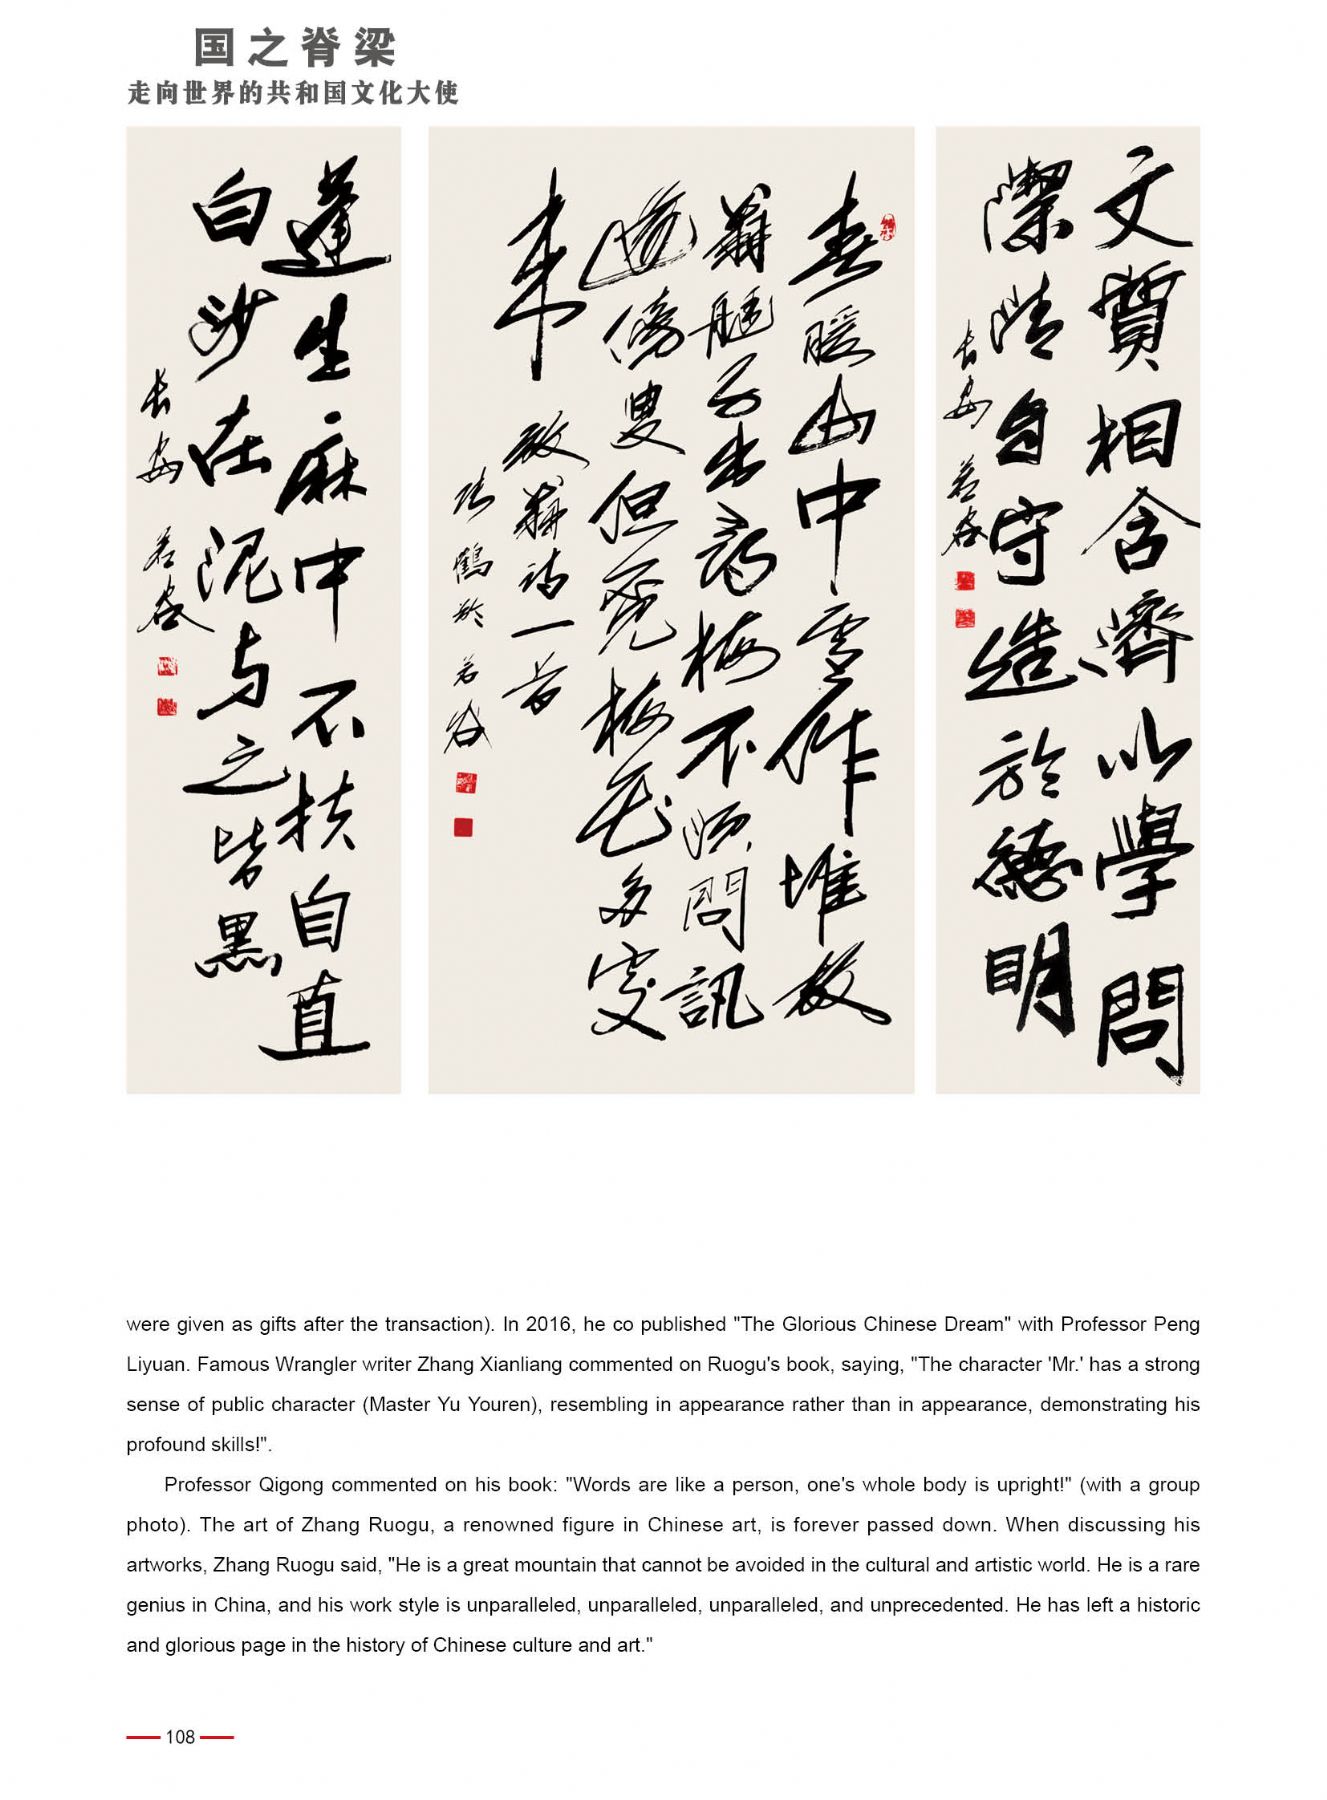 国之脊梁
走向世界的共和国文化大使
文質相含濟以學問
潔清自守造於德明
长安 若谷
春暖山中雪作堆放
翁艇子出尋梅不须問訊
道傍叟但覓梅花多处
来
放翁诗一首
张鶴 若谷
蓬生麻中不扶自直
白沙在泥与之皆黑
长安 若谷
were given as gifts after the transaction). In 2016, he co published "The Glorious Chinese Dream" with Professor Peng
Liyuan. Famous Wrangler writer Zhang Xianliang commented on Ruogu's book, saying, "The character 'Mr.' has a strong
sense of public character (Master Yu Youren), resembling in appearance rather than in appearance, demonstrating his
profound skills!".
Professor Qigong commented on his book: "Words are like a person, one's whole body is upright!" (with a group
photo). The art of Zhang Ruogu, a renowned figure in Chinese art, is forever passed down. When discussing his
artworks, Zhang Ruogu said, "He is a great mountain that cannot be avoided in the cultural and artistic world. He is a rare
genius in China, and his work style is unparalleled, unparalleled, unparalleled, and unprecedented. He has left a historic
and glorious page in the history of Chinese culture and art."
108